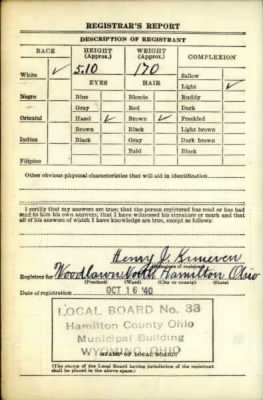 REGISTRAR'S REPORT
DESCRIPTION OF REGISTRANT
RACE HEIGHT (Approx.) WEIGHT (Approx.) COMPLEXION
White ✓ 5.10 170 Sallow
EYES HAIR Light ✓
Negro Blue Blonde Ruddy
Gray Red Dark
Oriental Hazel ✓ Brown ✓ Freckled
Brown Black Light brown
Indian Black Gray Dark brown
Bald Black
Filipino
Other obvious physical characteristics that will aid in identification
I certify that my answers are true; that the person registered has read or has had
read to him his own answers; that I have witnessed his signature or mark and that
all of his answers of which I have knowledge are true, except as follows:
Henry J.
Registrar for Woodlawn North Hamilton Ohio
(Precinct) (Ward) (City or county) (State)
Date of registration OCT 16 '40
LOCAL BOARD No. 33
Hamilton County Ohio
Municipal Building
WYOMING OHIO
STAMP OF LOCAL BOARD
(The stamp of the Local Board having jurisdiction of the registrant
shall be placed in the above space.)